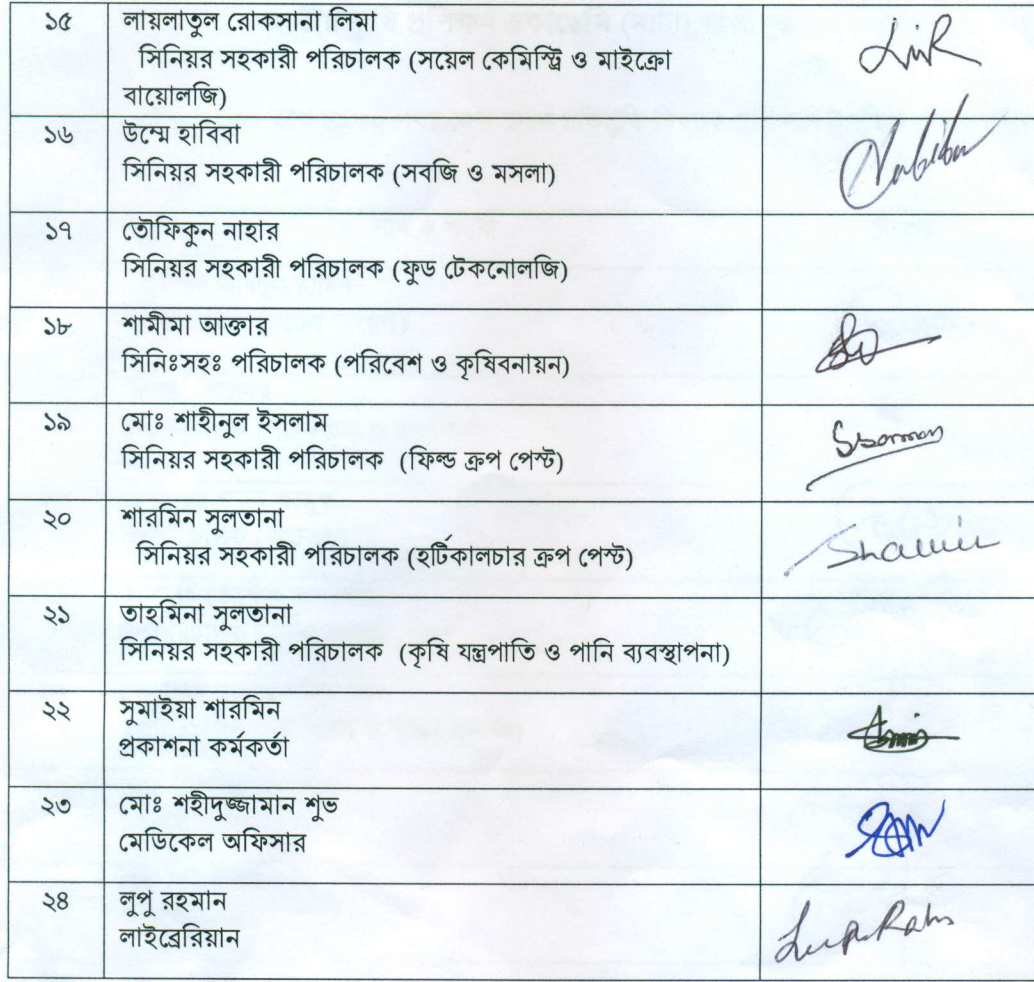 ১৫ লায়লাতুল রোকসানা লিমা
সিনিয়র সহকারী পরিচালক (সয়েল কেমিস্ট্রি ও মাইক্রো
বায়োলজি)
১৬ উম্মে হাবিবা
সিনিয়র সহকারী পরিচালক (সবজি ও মসলা)
১৭ তৌফিকুন নাহার
সিনিয়র সহকারী পরিচালক (ফুড টেকনোলজি)
১৮ শামীমা আক্তার
সিনিঃসহঃ পরিচালক (পরিবেশ ও কৃষিবনায়ন)
১৯ মোঃ শাহীনুল ইসলাম
সিনিয়র সহকারী পরিচালক (ফিল্ড ক্রপ পেস্ট)
২০ শারমিন সুলতানা
সিনিয়র সহকারী পরিচালক (হর্টিকালচার ক্রপ পেস্ট)
২১ তাহমিনা সুলতানা
সিনিয়র সহকারী পরিচালক (কৃষি যন্ত্রপাতি ও পানি ব্যবস্থাপনা)
২২ সুমাইয়া শারমিন
প্রকাশনা কর্মকর্তা
২৩ মোঃ শহীদুজ্জামান শুভ
মেডিকেল অফিসার
২৪ লুপু রহমান
লাইব্রেরিয়ান